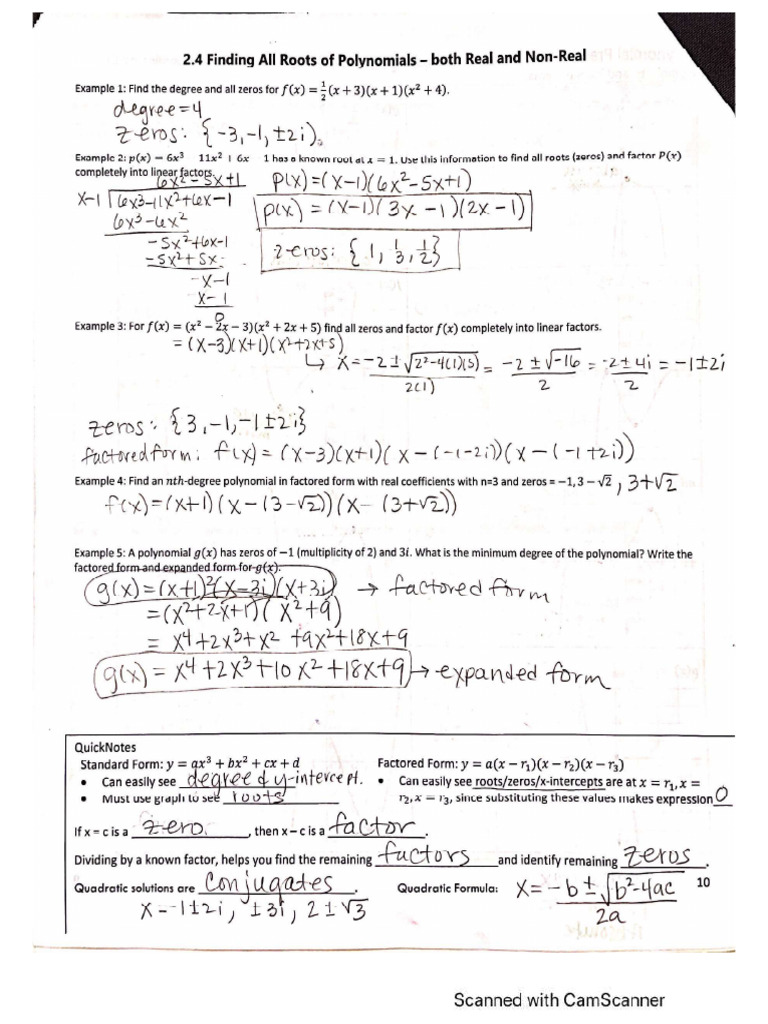 2.4 Finding All Roots of Polynomials – both Real and Non-Real
Example 1: Find the degree and all zeros for f(x) = 1/2(x + 3)(x + 1)(x² + 4).
degree = 4
zeros: {-3, -1, ±2i}.
Example 2: p(x) = 6x³ 11x² + 6x 1 has a known root at x = 1. Use this information to find all roots (zeros) and factor P(x)
completely into linear factors.
6x² - 5x + 1
x-1 | 6x³ - 11x² + 6x - 1
6x³ - 6x²
-5x² + 6x - 1
-5x² + 5x
-x - 1
x - 1
0
P(x) = (x-1)(6x² - 5x + 1)
P(x) = (x-1)(3x - 1)(2x - 1)
zeros: {1, 1/3, 1/2}
Example 3: For f(x) = (x² − 2x − 3)(x² + 2x + 5) find all zeros and factor f(x) completely into linear factors.
= (x-3)(x+1)(x²+2x+5)
↳ x = -2 ± √(2²-4(1)(5)) / 2(1) = -2 ± √-16 / 2 = -2 ± 4i / 2 = -1 ± 2i
zeros: {3, -1, -1 ± 2i}
factored form: f(x) = (x-3)(x+1)(x - (-1-2i))(x - (-1+2i))
Example 4: Find an nth-degree polynomial in factored form with real coefficients with n=3 and zeros = −1, 3 − √2, 3+√2
f(x) = (x+1)(x - (3-√2))(x - (3+√2))
Example 5: A polynomial g(x) has zeros of −1 (multiplicity of 2) and 3i. What is the minimum degree of the polynomial? Write the
factored form and expanded form for g(x).
g(x) = (x+1)²(x-3i)(x+3i) → factored form
= (x²+2x+1)(x²+9)
= x⁴+2x³+x² +9x²+18x+9
g(x) = x⁴+2x³+10x²+18x+9 → expanded form
QuickNotes
Standard Form: y = ax³ + bx² + cx + d
• Can easily see degree & y-intercept.
• Must use graph to see roots
Factored Form: y = a(x − r₁)(x − r₂)(x − r₃)
• Can easily see roots/zeros/x-intercepts are at x = r₁, x =
r₂, x = r₃, since substituting these values makes expression 0
If x = c is a zero, then x – c is a factor.
Dividing by a known factor, helps you find the remaining factors and identify remaining zeros.
Quadratic solutions are conjugates.
x = -1±2i, ±3i, 2±√3
Quadratic Formula: x = -b ± √(b²-4ac) / 2a
10
Scanned with CamScanner